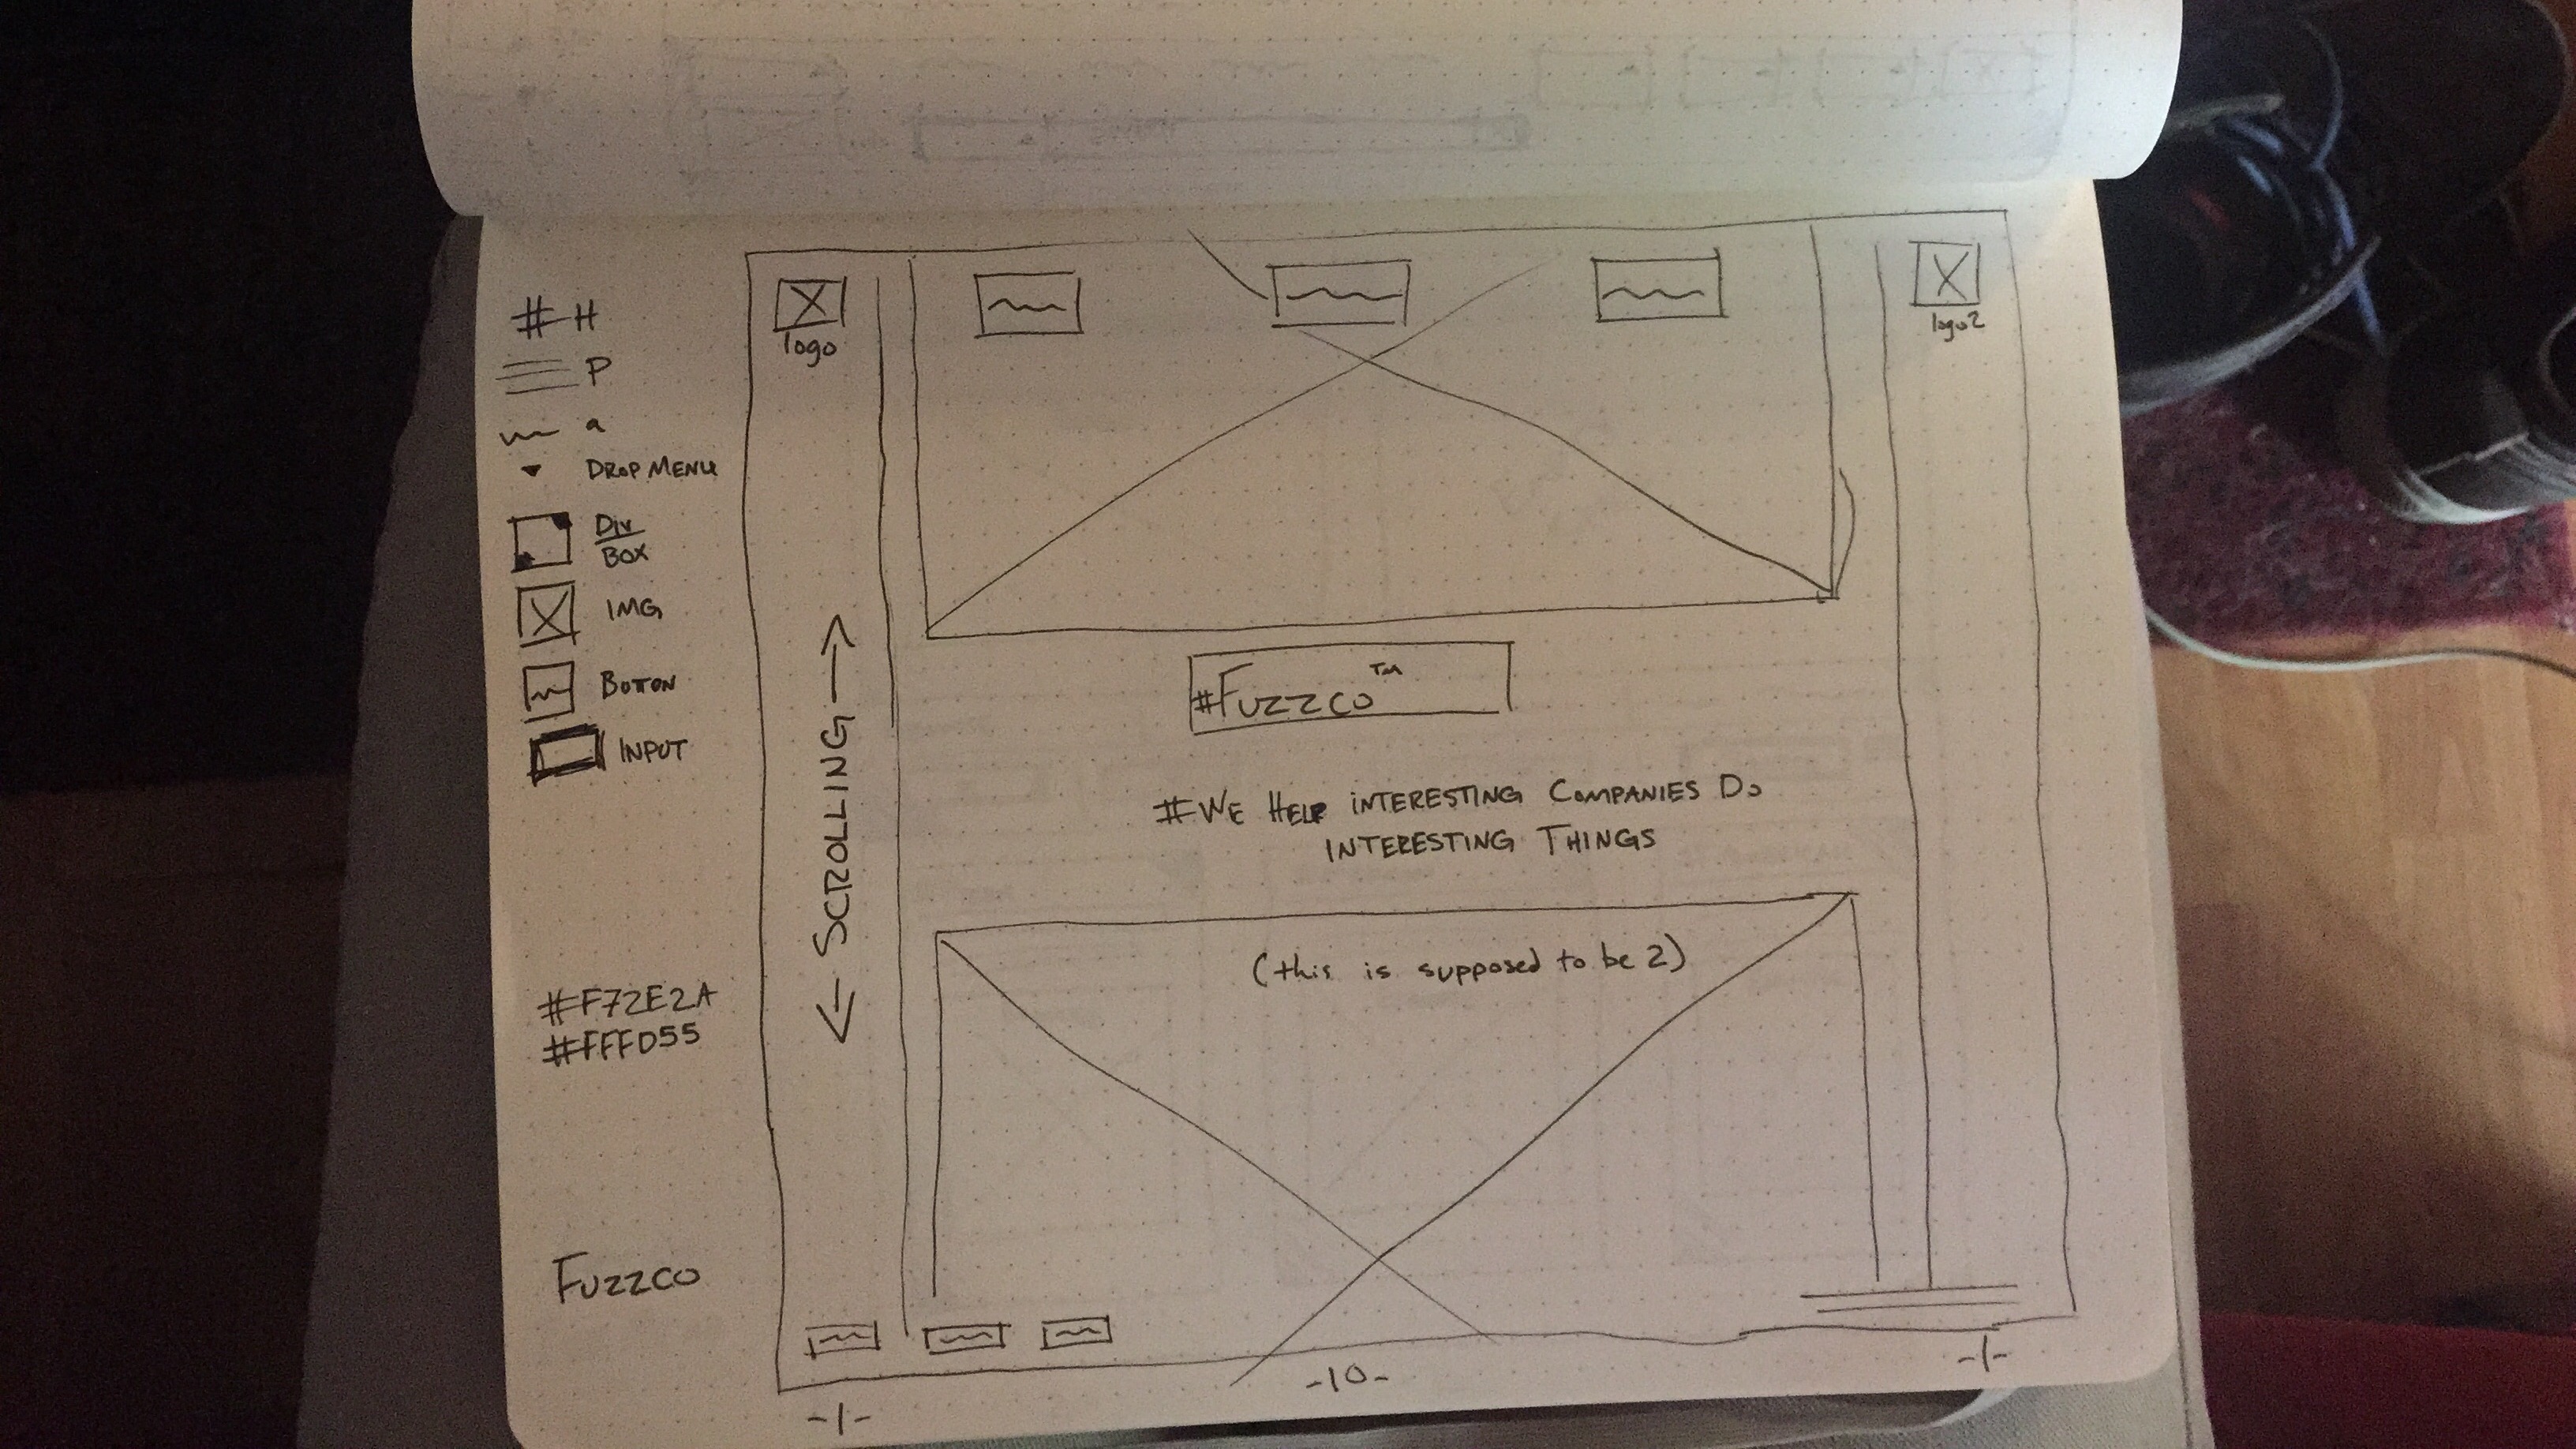 # H
P
a
DROP MENU
DIV
BOX
IMG
BOTON
INPUT
#F72E2A
#FFFD55
FUZZCO
logo
logo2
← SCROLLING →
#FUZZCO™
#WE HELP INTERESTING COMPANIES DO
INTERESTING THINGS
(this is supposed to be 2)
-1-
-10-
-1-